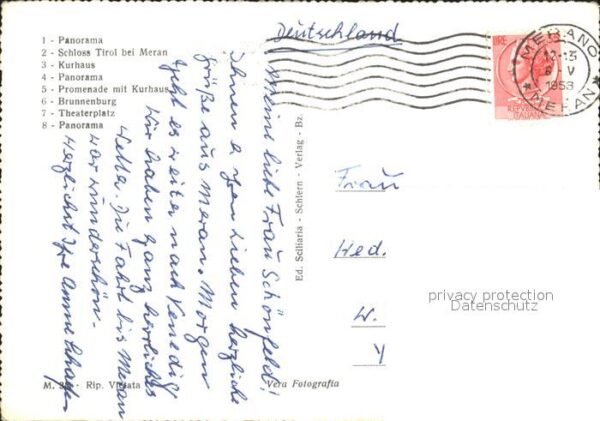 Deutschland
1 - Panorama
2 - Schloss Tirol bei Meran
3 - Kurhaus
4 - Panorama
5 - Promenade mit Kurhaus
6 - Brunnenburg
7 - Theaterplatz
8 - Panorama
Meine liebe Frau Schönfeld!
Ihnen u. Ihren Lieben herzliche
Grüße aus Meran. Morgen
geht es weiter nach Venedig
Wir haben ganz herrliches
Wetter. Die Fahrt bis Meran
war wunderschön.
Herzlichst Ihre Anne
Ed. Sciliaria - Schlern - Verlag - Bz.
LIRE
REPVBBLICA
ITALIANA
MERANO
12-13
6 - V
MERAN
Frau
Hed.
W.
y
privacy protection
Datenschutz
M. - Rip. Vietata
Vera Fotografia